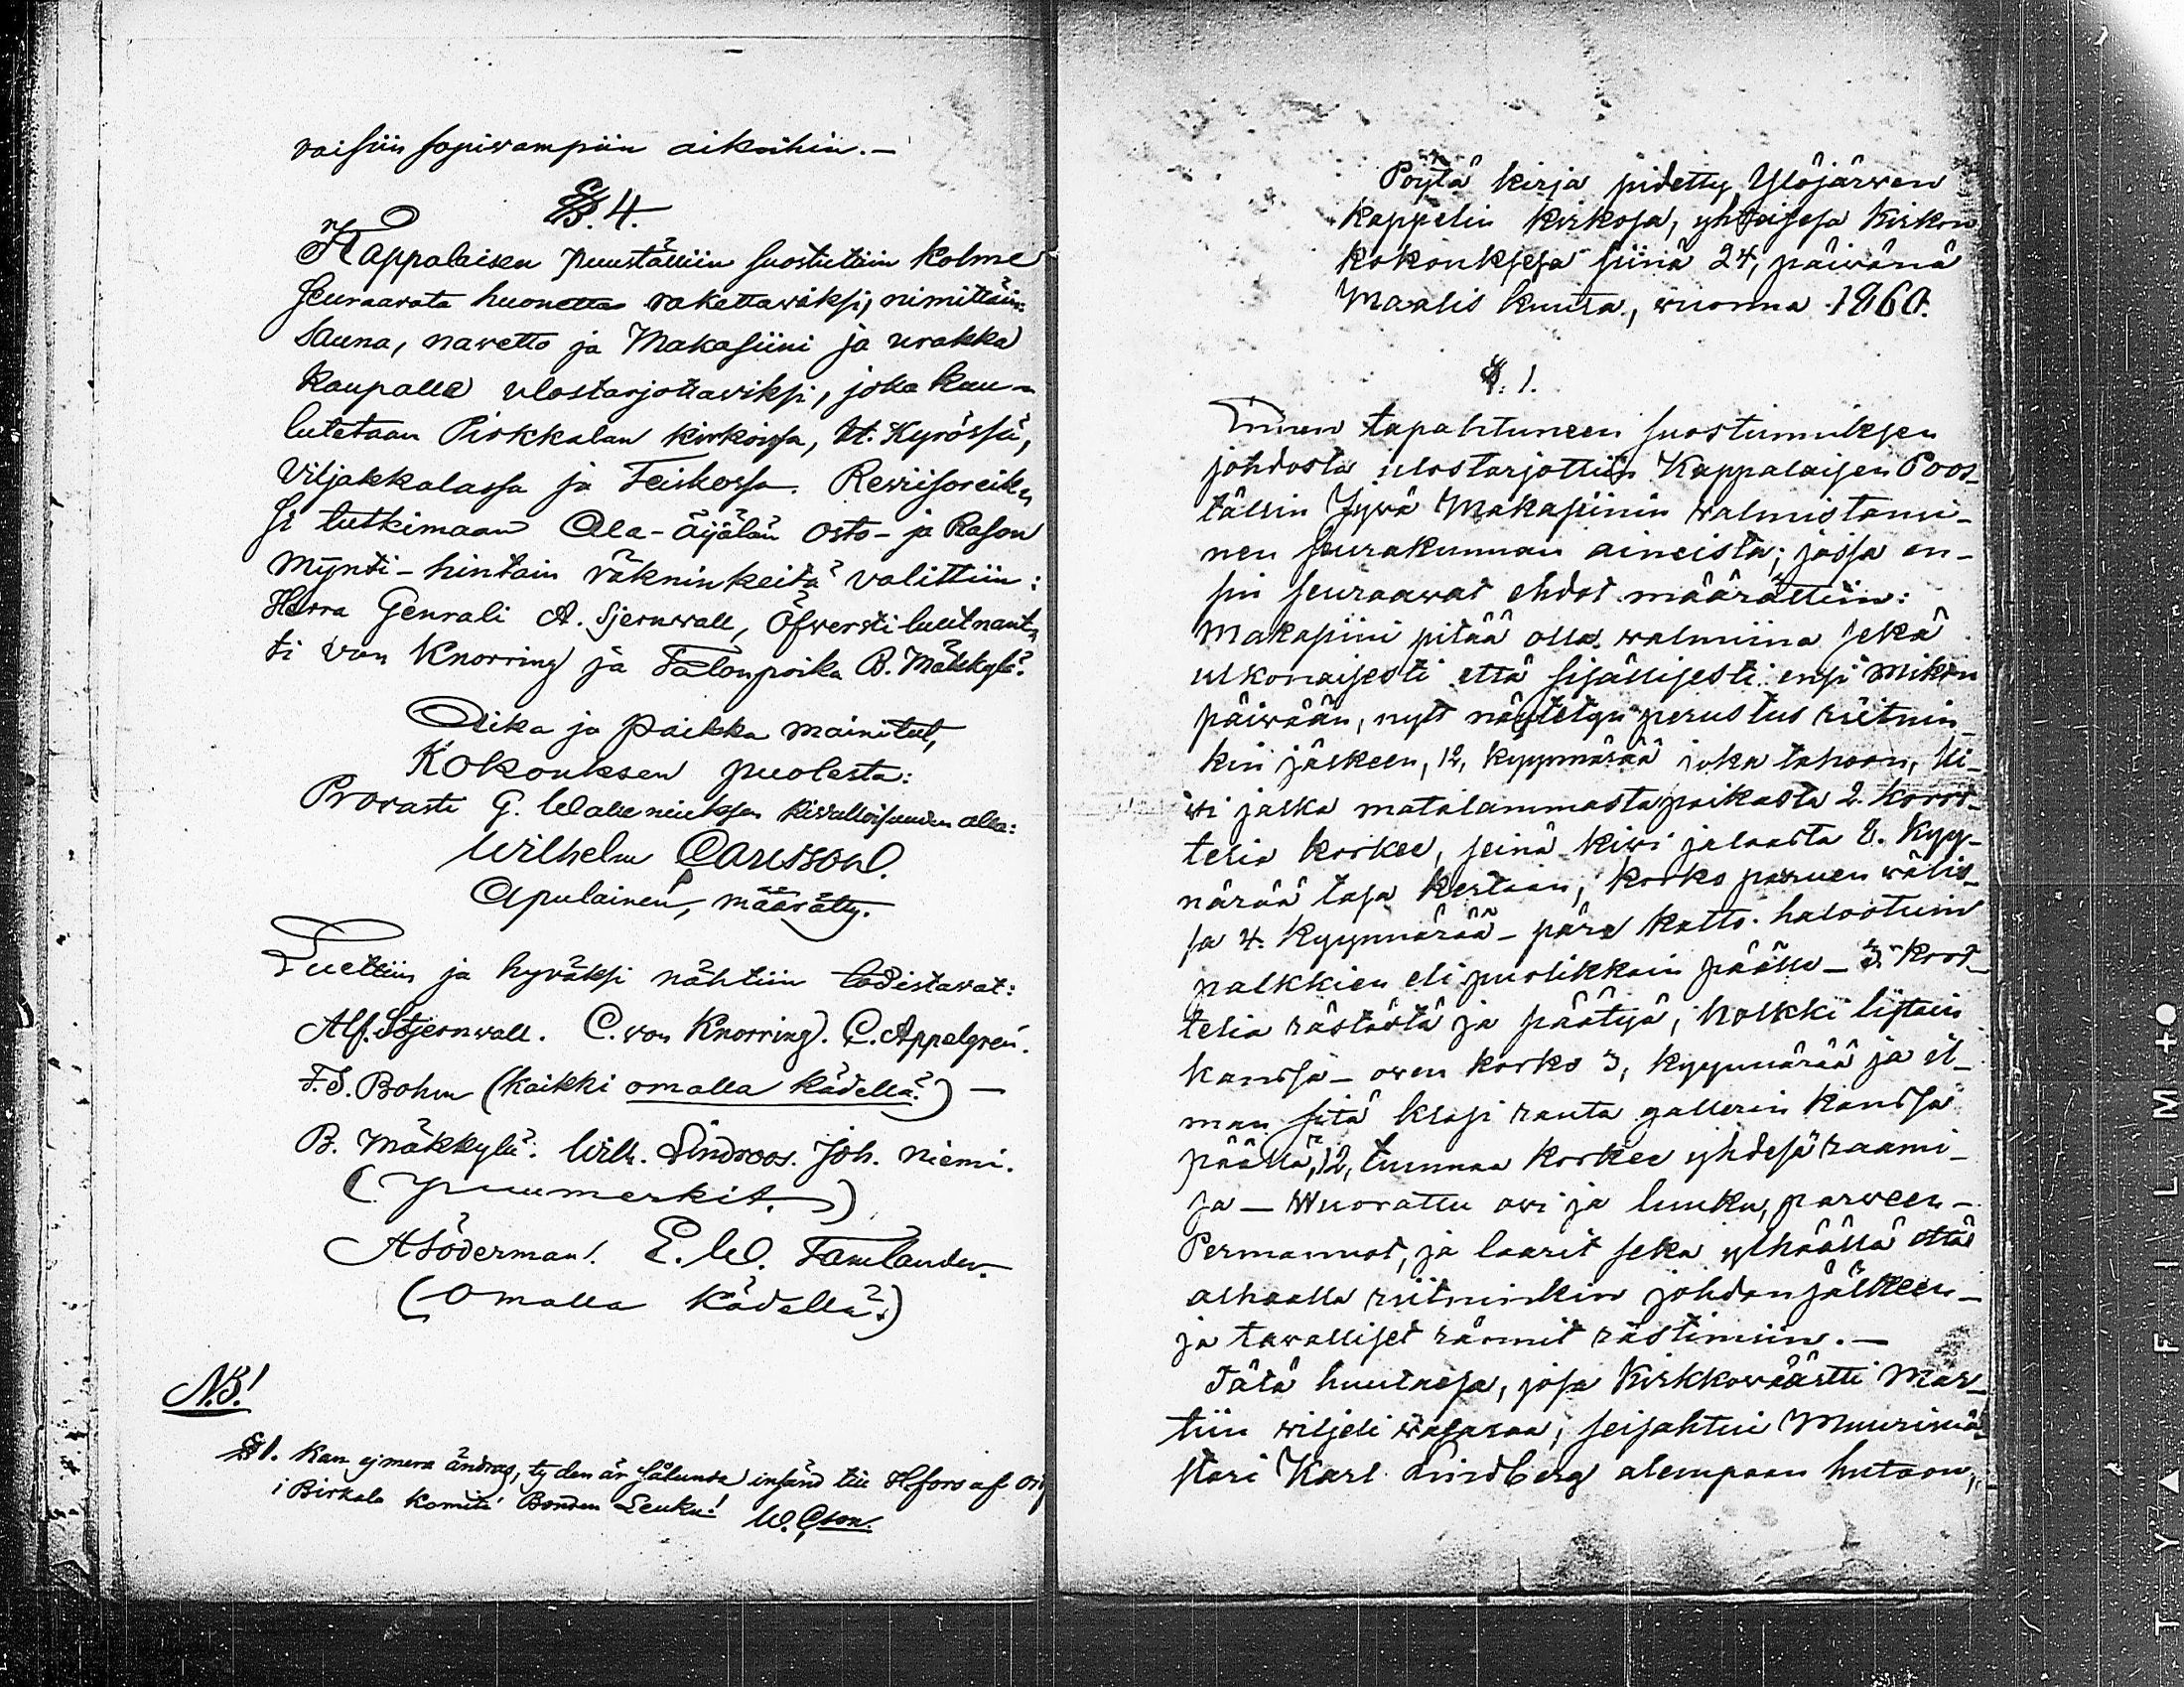 voisiin sopivampiin aikoihin.—
§. 4.
Kappalaisen puuställiin suostuttiin kolme
seuraavata huonetta rakettaviksi, nimittäin:
Sauna, navetto ja Makasiini ja urakka
kaupalla ulostarjottaviksi, joka kuu-
lutetaan Pirkkalan kirkoissa, H. Kyrössä,
Viljakkalassa ja Teiskossa. Reviisoreik-
si tutkimaan Ala-Äijälän osto- ja Kason
mynti-hintain räkninkeitä valittiin:
Herra Genrali A. Sjernvall, Öfversti luutnant-
ti von Knorring ja Talonpoika B. Mäkkylä.
Aika ja paikka mainitut,
Kokouksen puolesta:
Provasti G. Walleniuksen
Wilhelm Carlsson.
Apulainen, määrätty.
Luettiin ja hyväksi nähtiin todistavat:
Alf. Stjernvall. C. von Knorring. C. Appelgren.
F. S. Bohm (kaikki omalla kädellä.) —
B. Mäkkylä. Wilh. Lindroos. Joh. Niemi.
(puumerkit.)
A Söderman. E. W. Tamlander.
(omalla kädellä.)
N.B!
§ 1. Kan ej mera ändras, ty den är sålunda insänd till H:fors af
i Birkala komité Bonden Leuku! W. Cson.
Pöytä kirja pidetty Ylöjärwen
kappelin kirkosa, yhteisesä Kirkon
kokouksesa siinä 24, päiwänä
Maalis kuusa, wuonna 1860.
§. 1.
Ennen tapahtuneen suostumuksen
johdosta ulostarjottiin Kappalaisen Poos-
tällin Jywä Makasiinin walmistami-
nen seurakunnan aineista; jossa en-
sin seuraawat ehdot määrättiin:
Makasiini pitää olla walmiina sekä
ulkonaisesti että sisällisesti ensi Mikon
päiwään, nyt näytetyn perustus riitnin-
kin jäskeen, 12, kyynnärää joka tahoon, ki-
wi jaska matalammasta paikasta 2. kort-
telia korkee, seinä kiwi jalaasta 8. kyy-
närää tasa kertaan, korko parwen wälis-
sä 4. kyynnärää - päre katto halootuin
palkkien eli puolikkain päälle - 3. kort-
telia rästästä ja päätyä, holkki listain
kanssa - owen korko 3, kyynnärää ja il-
man sitä klasi rauta gallerin kanssa
päällä, 12, tuumaa korkee yhdesä raami-
sa — Wuorattu owi ja luuku, parween -
Permannot, ja laarit sekä ylhäällä että
alhaalla riitninkin johdon jälkeen -
ja tawalliset rännit rästimiin. —
Tätä huutaesa, josa Kirkkowäärtti Mar-
tiin wiljeli wasaraa, seisahtui Muurimä-
stari Karl Lindberg alempaan hutoon,